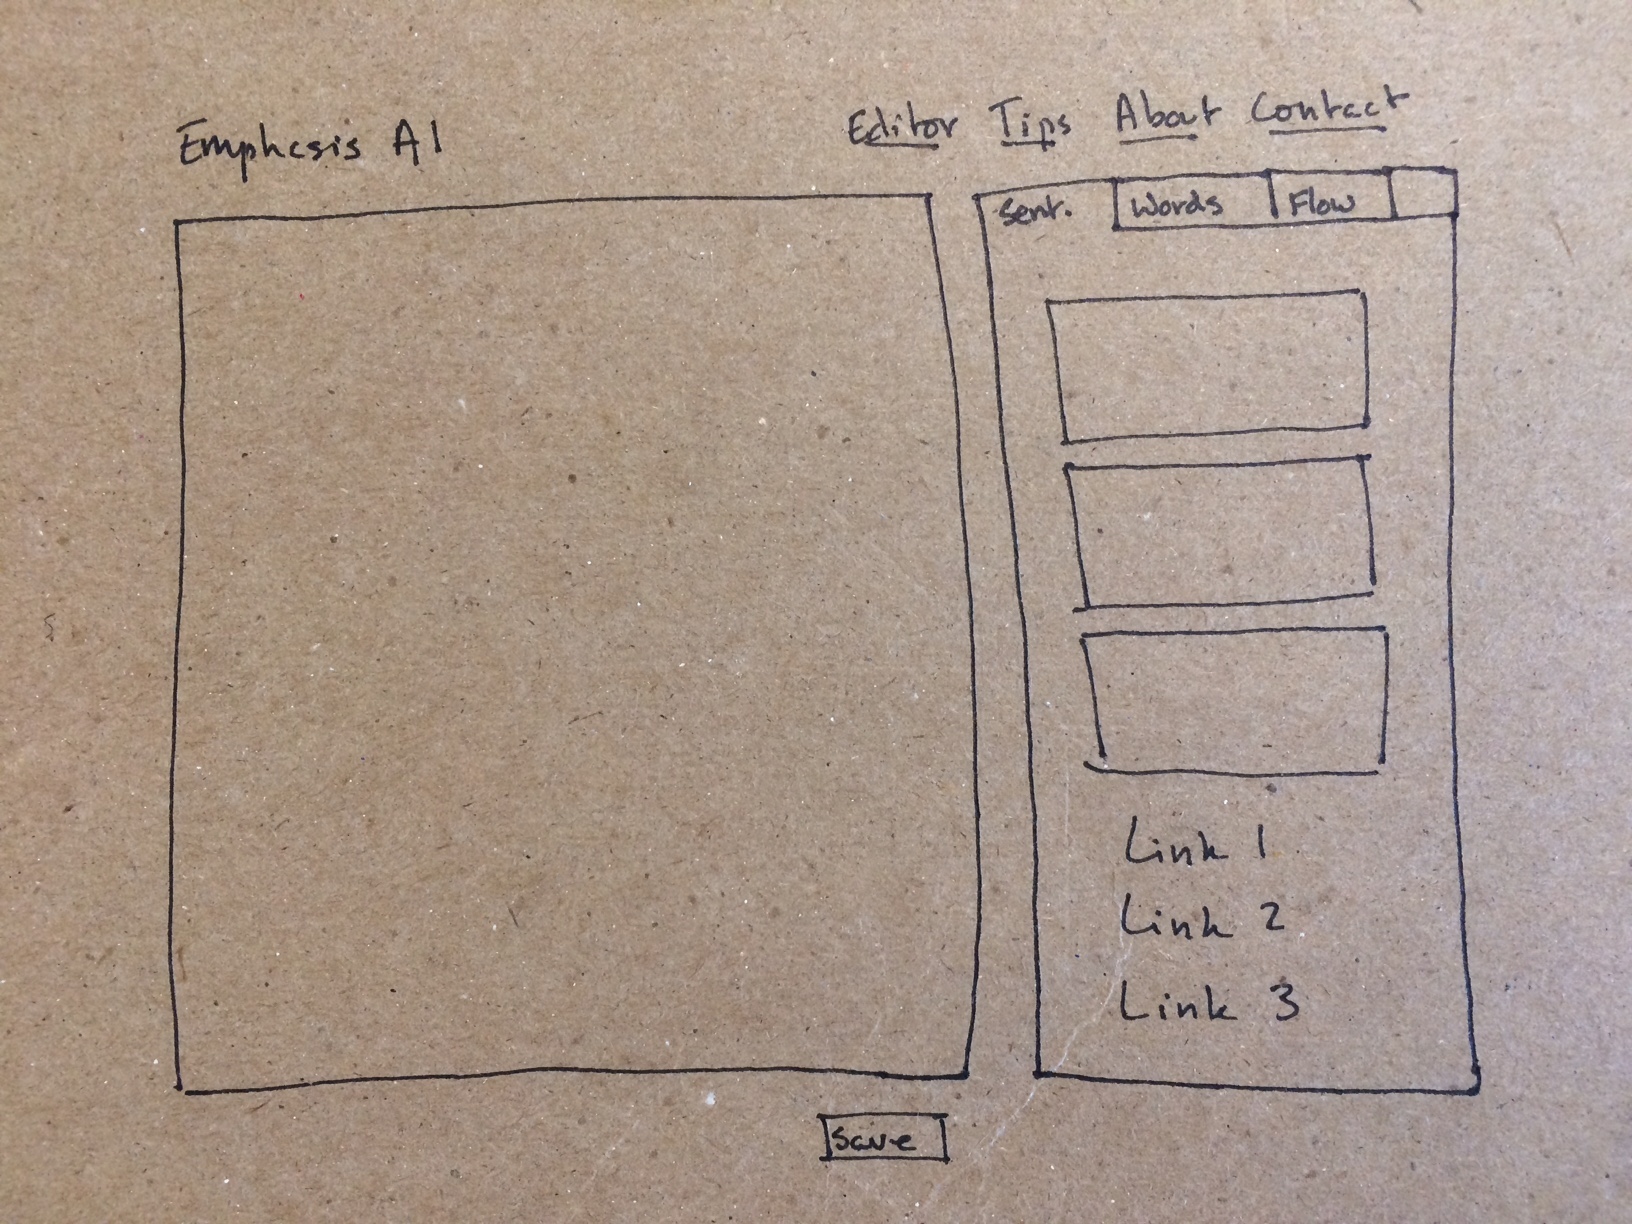 Emphasis AI
Editor Tips About Contact
Sent. Words Flow
Link 1
Link 2
Link 3
Save